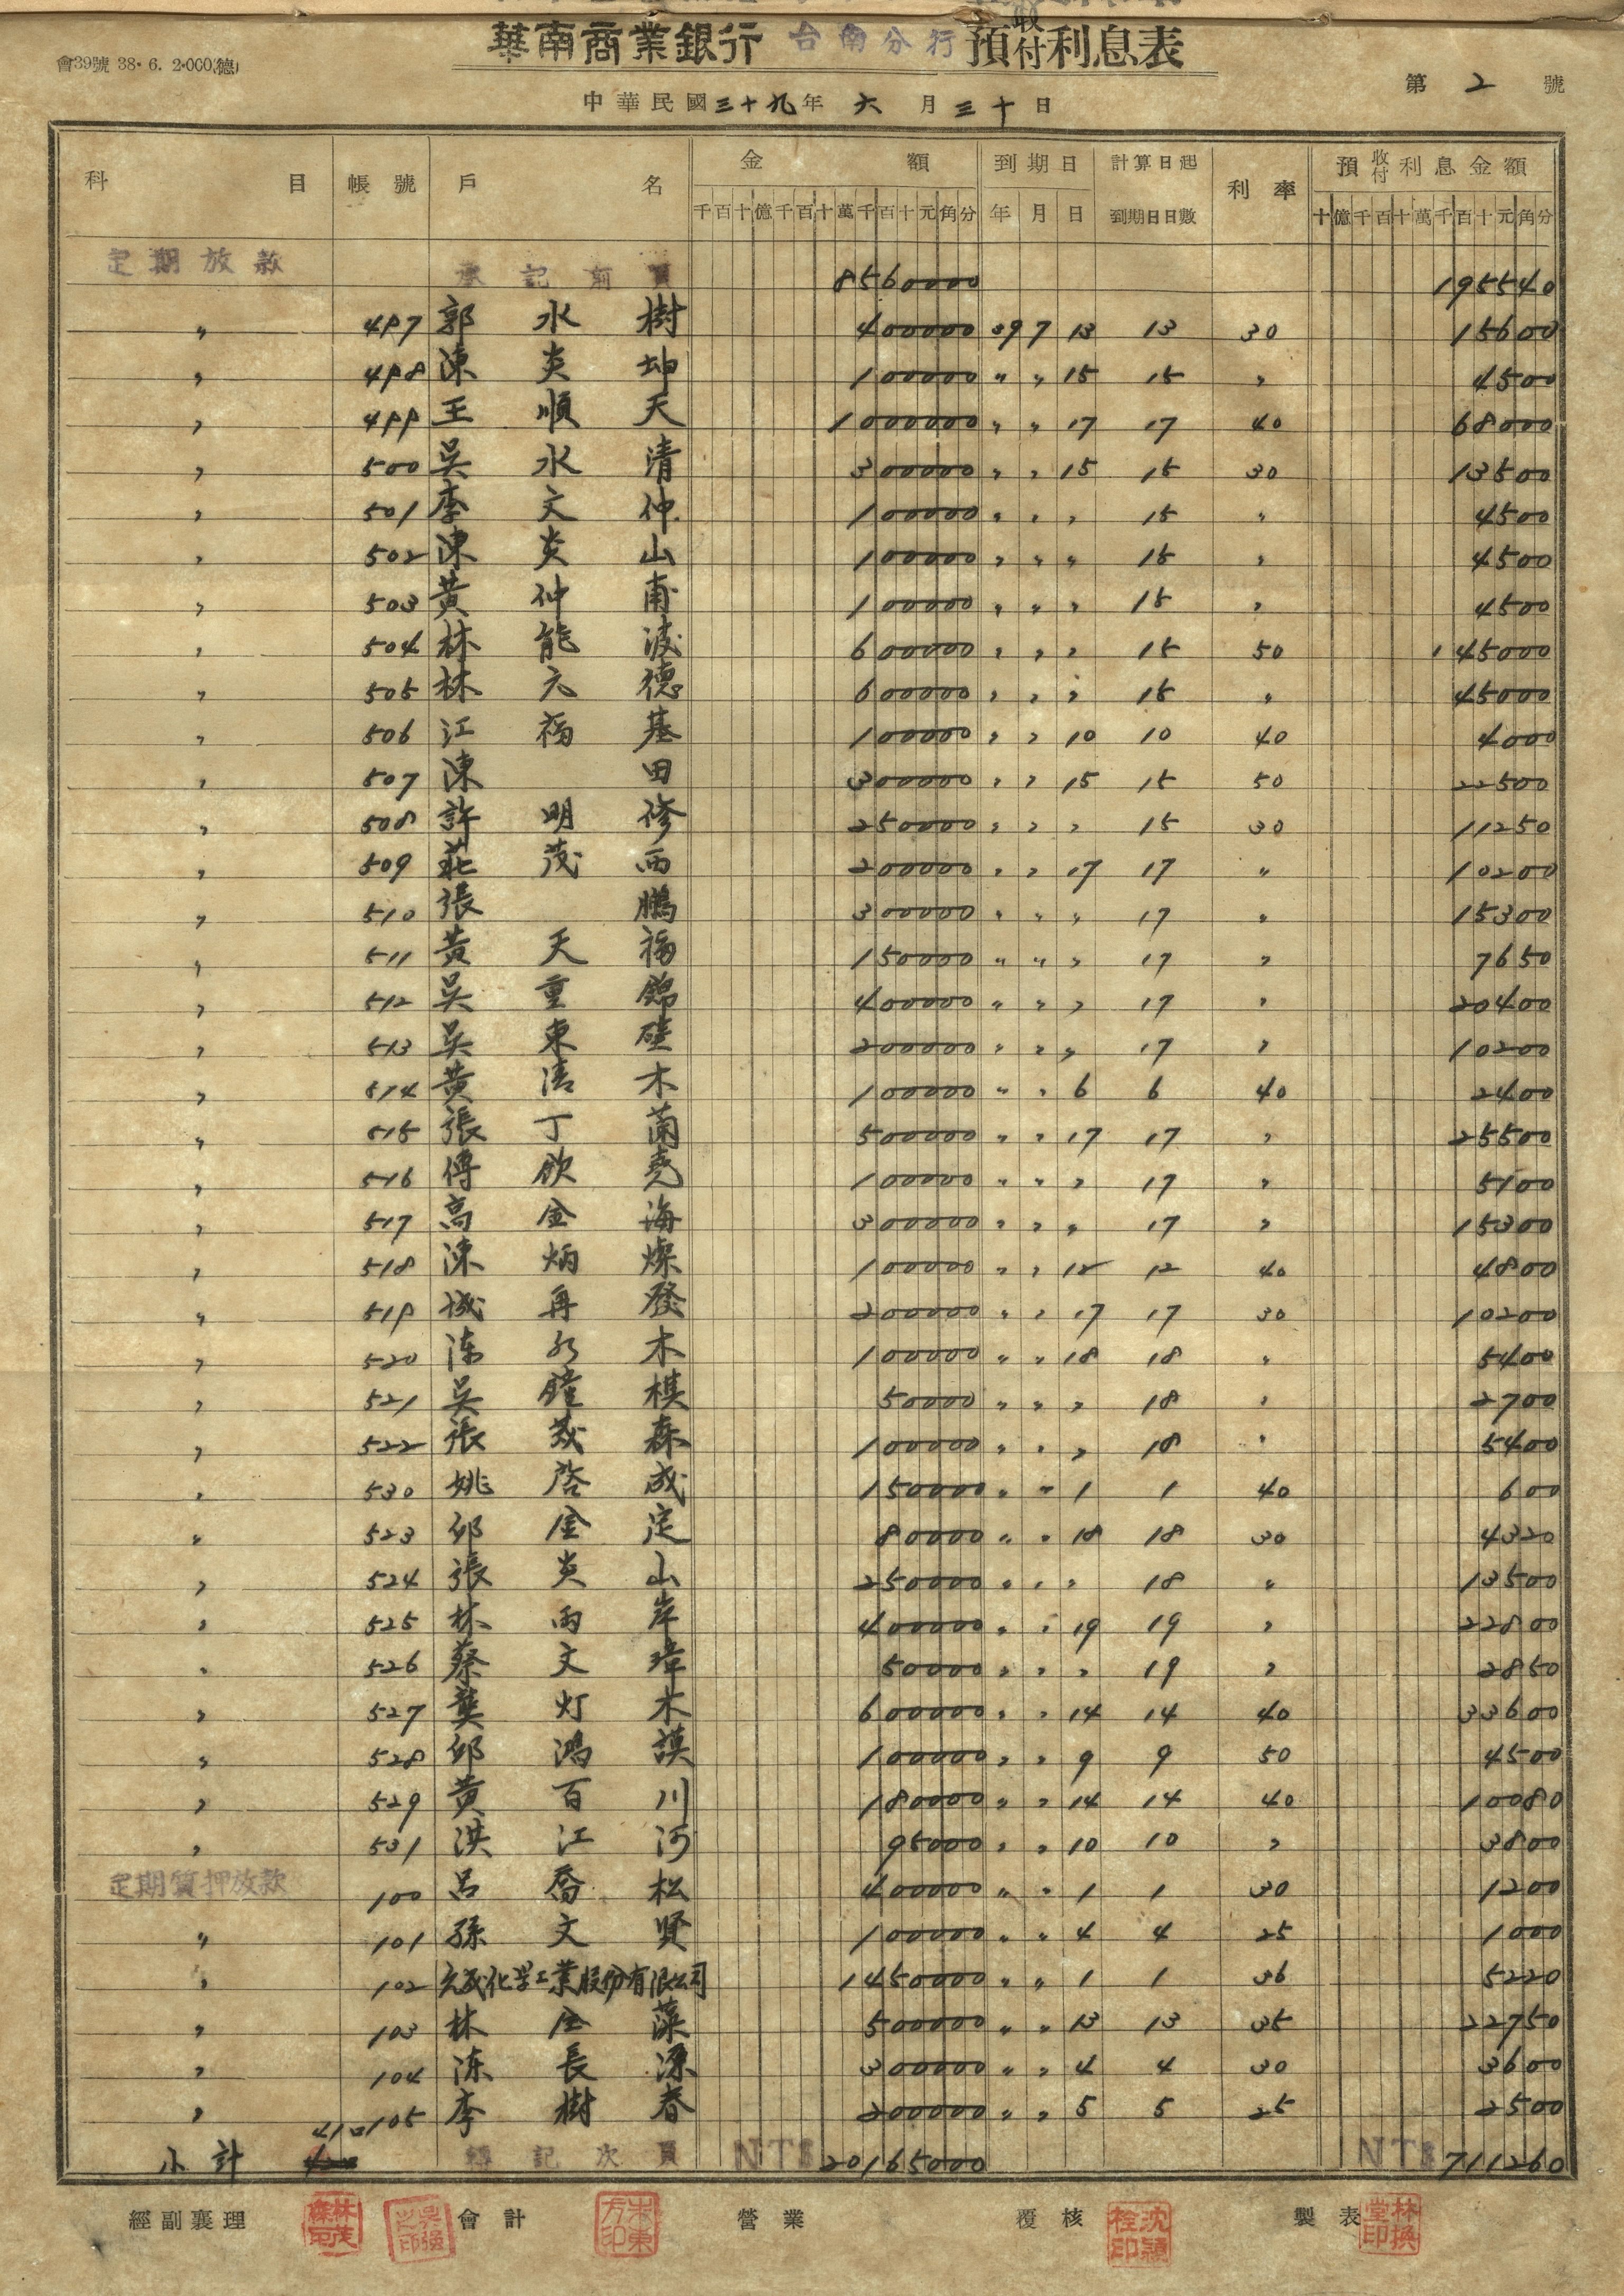 華南商業銀行 台南分行 預收付利息表
會39號 38. 6. 2.000(德)
第 2 號
中華民國三十九年 六 月 三十 日
科目 帳號 戶名 金額 到期日 計算日起到期日日數 利率 預收付利息金額
千百十億千百十萬千百十元角分 年 月 日 十億千百十萬千百十元角分
定期放款 承記前頁 8560000 195540
〃 497 郭水樹 400000 39 7 13 13 30 15600
〃 498 陳炎坤 100000 〃 〃 15 15 〃 4500
〃 499 王順天 1000000 〃 〃 17 17 40 68000
〃 500 吳水清 300000 〃 〃 15 15 30 13500
〃 501 李文仲 100000 〃 〃 〃 15 〃 4500
〃 502 陳炎山 100000 〃 〃 〃 15 〃 4500
〃 503 黃仲甫 100000 〃 〃 〃 15 〃 4500
〃 504 林能波 600000 〃 〃 〃 15 50 45000
〃 505 林元德 600000 〃 〃 〃 15 〃 45000
〃 506 江福基 100000 〃 〃 10 10 40 4000
〃 507 陳田 300000 〃 〃 15 15 50 22500
〃 508 許明修 250000 〃 〃 〃 15 30 11250
〃 509 莊茂西 200000 〃 〃 17 17 〃 10200
〃 510 張鵬 300000 〃 〃 〃 17 〃 15300
〃 511 黃天福 150000 〃 〃 〃 17 〃 7650
〃 512 吳重錦 400000 〃 〃 〃 17 〃 20400
〃 513 吳東碰 200000 〃 〃 〃 17 〃 10200
〃 514 黃清木 100000 〃 〃 6 6 40 2400
〃 515 張丁蘭 500000 〃 〃 17 17 〃 25500
〃 516 傅欽堯 100000 〃 〃 〃 17 〃 5100
〃 517 高金海 300000 〃 〃 〃 17 〃 15300
〃 518 陳炳燦 100000 〃 〃 12 12 40 4800
〃 519 城再發 200000 〃 〃 17 17 30 10200
〃 520 陈水木 100000 〃 〃 18 18 〃 5400
〃 521 吳鐘棋 50000 〃 〃 〃 18 〃 2700
〃 522 張茂森 100000 〃 〃 〃 18 〃 5400
〃 530 姚啓成 150000 〃 〃 1 1 40 600
〃 523 邱金定 80000 〃 〃 18 18 30 4320
〃 524 張炎山 250000 〃 〃 〃 18 〃 13500
〃 525 林雨岸 400000 〃 〃 19 19 〃 22800
〃 526 蔡文璋 50000 〃 〃 〃 19 〃 2850
〃 527 龔灯木 600000 〃 〃 14 14 40 33600
〃 528 邱鴻謨 100000 〃 〃 9 9 50 4500
〃 529 黃百川 180000 〃 〃 14 14 40 10080
〃 531 洪江河 95000 〃 〃 10 10 〃 3800
定期質押放款 100 呂喬松 400000 〃 〃 1 1 30 1200
〃 101 孫文賢 100000 〃 〃 4 4 25 1000
〃 102 元成化学工業股份有限公司 1450000 〃 〃 1 1 36 5220
〃 103 林金藻 500000 〃 〃 13 13 35 22750
〃 104 陈長源 300000 〃 〃 4 4 30 3600
〃 105 李樹春 200000 〃 〃 5 5 25 2500
小計 41口 轉記次頁 NT$ 20165000 NT$ 711260
經副襄理 會計 營業 覆核 製表